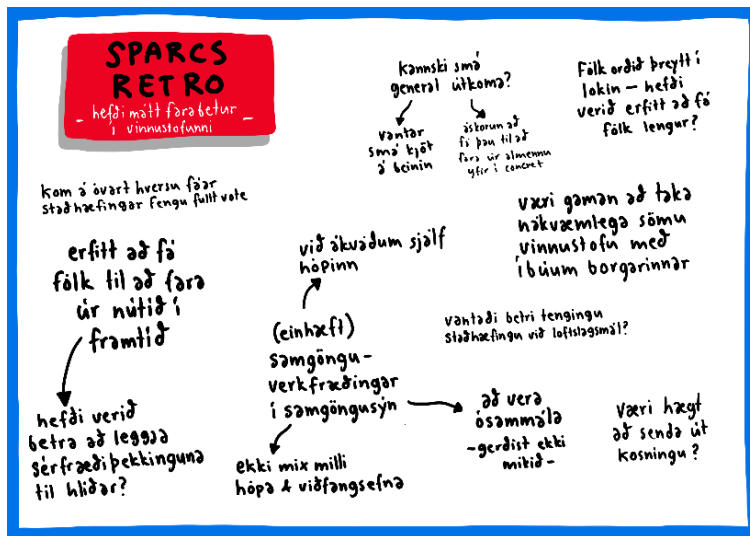 SPARCS
RETRO
- hefði mátt fara betur
í vinnustofunni -
kannski smá
general útkoma?
vantar
smá kjöt
á beinin
áskorun að
fá þau til að
fara úr almennu
yfir í concret
Fólk orðið þreytt í
lokin – hefði
verið erfitt að fá
fólk lengur?
kom á óvart hversu fáar
staðhæfingar fengu fullt vote
erfitt að fá
fólk til að fara
úr nútíð í
framtíð
hefði verið
betra að leggja
sérfræðiþekkinguna
til hliðar?
við ákváðum sjálf
hópinn
(einhæft)
samgöngu-
verkfræðingar
í samgöngusýn
ekki mix milli
hópa & viðfangsefna
að vera
ósammála
- gerðist ekki
mikið -
væri gaman að taka
nákvæmlega sömu
vinnustofu með
íbúum borgarinnar
vantaði betri tengingu
staðhæfingu við loftslagsmál?
Væri hægt
að senda út
kosningu?